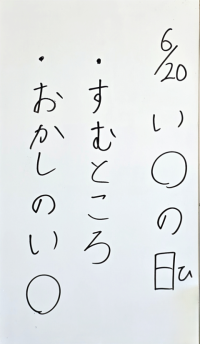 6/20 い〇の日ひ
・すむところ
・おかしのい〇